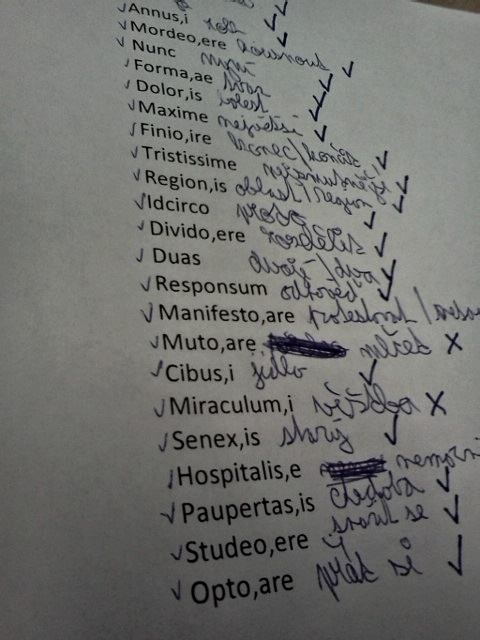 Annus,i rok
Mordeo,ere kousnout
Nunc nyní
Forma,ae tvar
Dolor,is bolest
Maxime největší
Finio,ire konec/končit
Tristissime nejsmutněji
Region,is oblast/region
Idcirco proto
Divido,ere rozdělit
Duas dvojí/dva
Responsum odpověď
Manifesto,are protestovat/
Muto,are mlčet
Cibus,i jídlo
Miraculum,i věštba
Senex,is starý
Hospitalis,e nemocni
Paupertas,is chudoba
Studeo,ere snažit se
Opto,are přát si